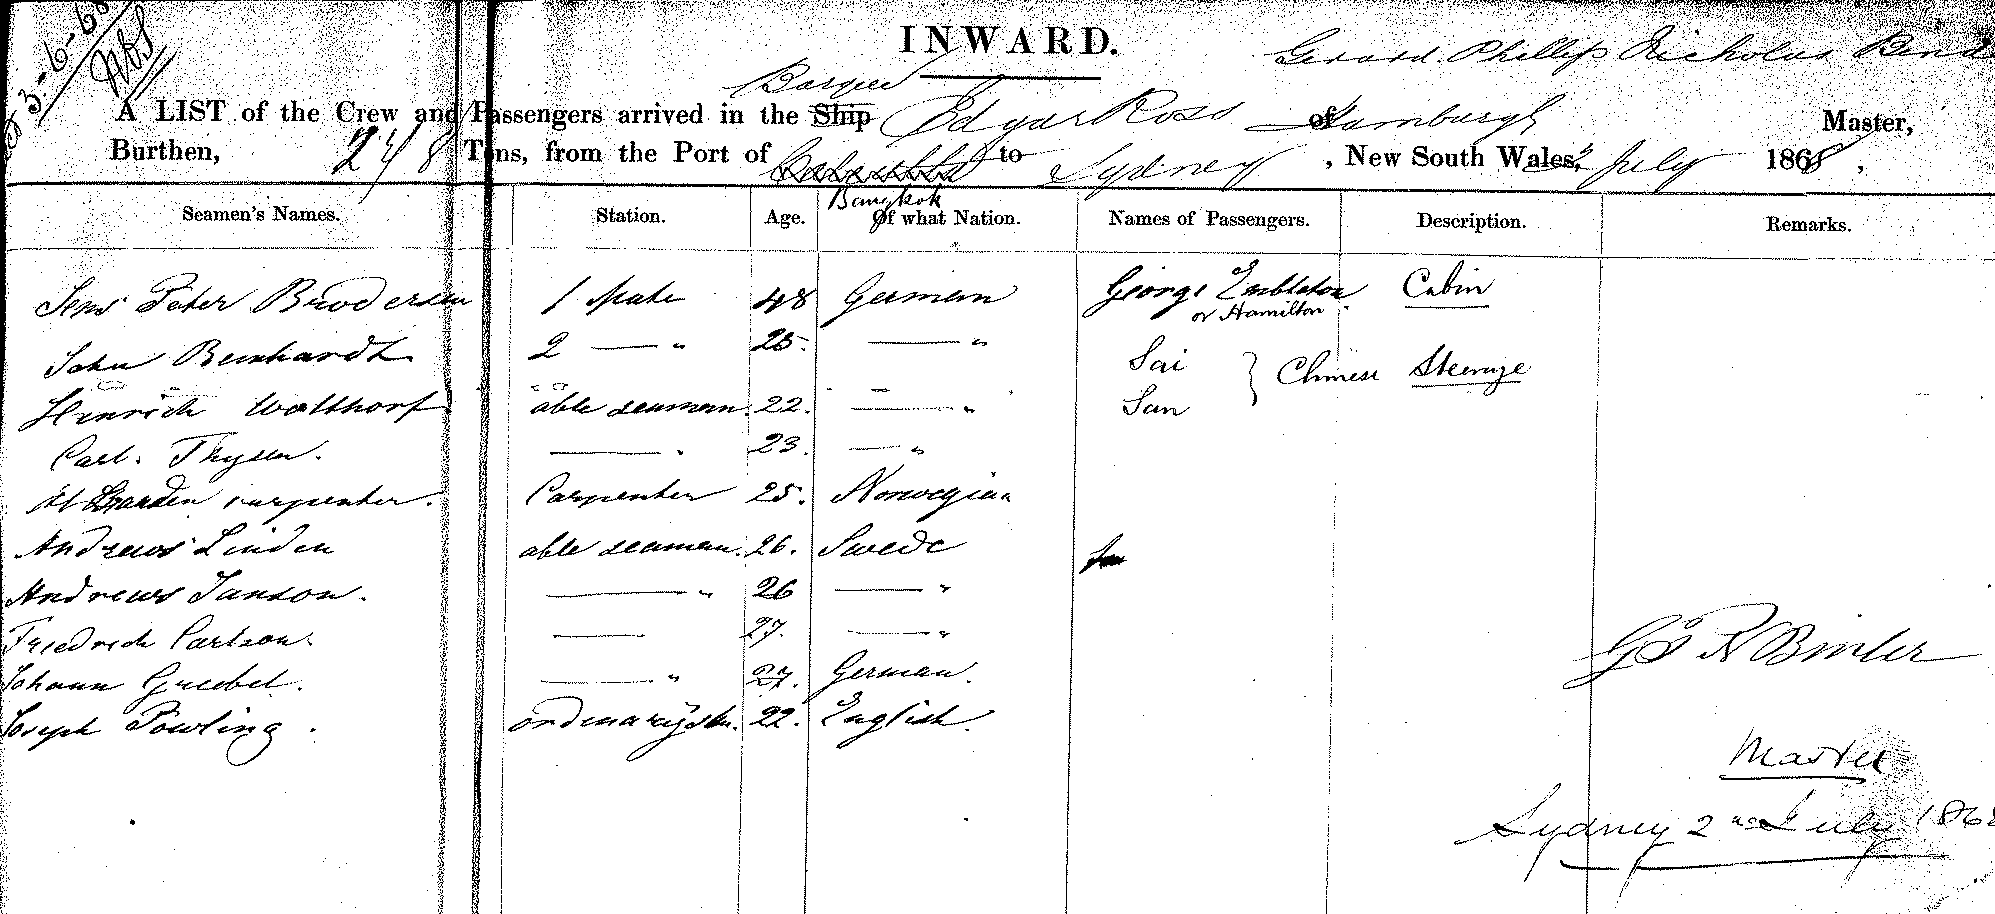 3-6-68
INWARD.
Gerard Phillip Nicholas
Barque
A LIST of the Crew and Passengers arrived in the Ship Edgar Ross of Hamburgh Master,
Burthen, 248 Tons, from the Port of Calcutta to Sydney, New South Wales, July 1868,
Bangkok
Seamen's Names. Station. Age. Of what Nation. Names of Passengers. Description. Remarks.
Jens Peter Broodersen 1 Mate 48 German George Embleton Cabin
or Hamilton
John Bernhardt 2 — " 25. — " Sai } Chinese Steerage
Hinrich Wallthorf able seaman. 22. — " San
Carl. Thysen. — " 23. — "
carpenter. Carpenter 25. Norwegian
Andrews Linden able seaman. 26. Swede
Andrews Janson. — " 26 — "
Friedrich Carlson. — 27. — "
Johann Guebel. — " 27. German.
Joseph Powling. ordinary 22. English.
Binler
Master
Sydney 2nd July 1868